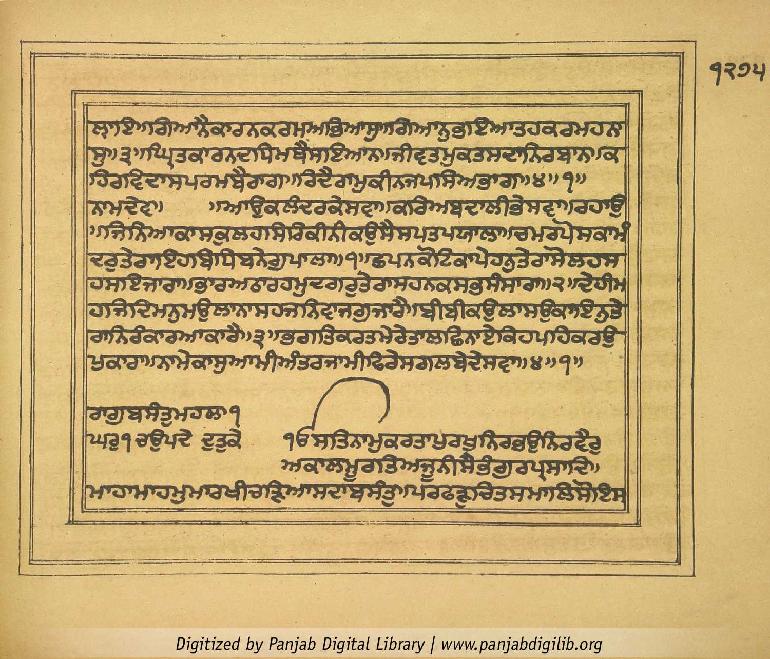 ੧੨੭੫
ਲਾਇ॥ਗਿਆਨੈਕਾਰਨਕਰਮਅਭਿਆਸੁ॥ਗਿਆਨੁਭਇਆਤਹਕਰਮਹਨਾ
ਸੁ॥੩॥ਘ੍ਰਿਤਕਾਰਨਦਧਿਮਥੈਸਇਆਨ॥ਜੀਵਤਮੁਕਤਸਦਾਨਿਰਬਾਨ॥ਕ
ਹਿਰਵਿਦਾਸਪਰਮਬੈਰਾਗ॥ਰਿਦੈਰਾਮੁਕੀਨਜਪਸਿਅਭਾਗ॥੪॥੧॥
ਨਾਮਦੇਵ॥ ॥ਆਉਕਲੰਦਰਕੇਸਵਾ॥ਕਰਿਅਬਦਾਲੀਭੇਸਵਾ॥ਰਹਾਉ
॥ਜਿਨਿਆਕਾਸਕੁਲਹਸਿਰਿਕੀਨੀਕਉਸੈਸਪਤਪਯਾਲਾ॥ਚਮਰਪੋਸਕਾਮੰ
ਦਰੁਤੇਰਾਇਹਬਿਧਿਬਨੇਗੁਪਾਲਾ॥੧॥ਛਪਨਕੋਟਿਕਾਪੇਹਨੁਤੇਰਾਸੋਲਹਸ
ਹਸਇਜਾਰਾ॥ਭਾਰਅਠਾਰਹਮੁਦਗਰੁਤੇਰਾਸਹਨਕਸਭਸੰਸਾਰਾ॥੨॥ਦੇਹੀਮ
ਹਜਿਦਿਮਨੁਮਉਲਾਨਾਸਹਜਨਿਵਾਜਗੁਜਾਰੈ॥ਬੀਬੀਕਉਲਾਸਉਕਾਇਨੁਤੇ
ਰਾਨਿਰੰਕਾਰਆਕਾਰੈ॥੩॥ਭਗਤਿਕਰਤਮੇਰੇਤਾਲਛਿਨਾਏਕਿਹਪਹਿਕਰਉ
ਪੁਕਾਰਾ॥ਨਾਮੇਕਾਸੁਆਮੀਅੰਤਰਜਾਮੀਫਿਰੇਸਗਲਬੇਦੇਸਵਾ॥੪॥੧॥
ਰਾਗੁਬਸੰਤੁਮਹਲਾ੧
ਘਰੁ੧ਚਉਪਦੇ ਦੁਤੁਕੇ ੴਸਤਿਨਾਮੁਕਰਤਾਪੁਰਖੁਨਿਰਭਉਨਿਰਵੈਰੁ
ਅਕਾਲਮੂਰਤਿਅਜੂਨੀਸੈਭੰਗੁਰਪ੍ਰਸਾਦਿ॥
ਮਾਹਾਮਾਹਮੁਮਾਰਖੀਚੜਿਆਸਦਾਬਸੰਤੁ॥ਪਰਫੜੁਚਿਤਸਮਾਲਿਸੋਇਸ
Digitized by Panjab Digital Library | www.panjabdigilib.org